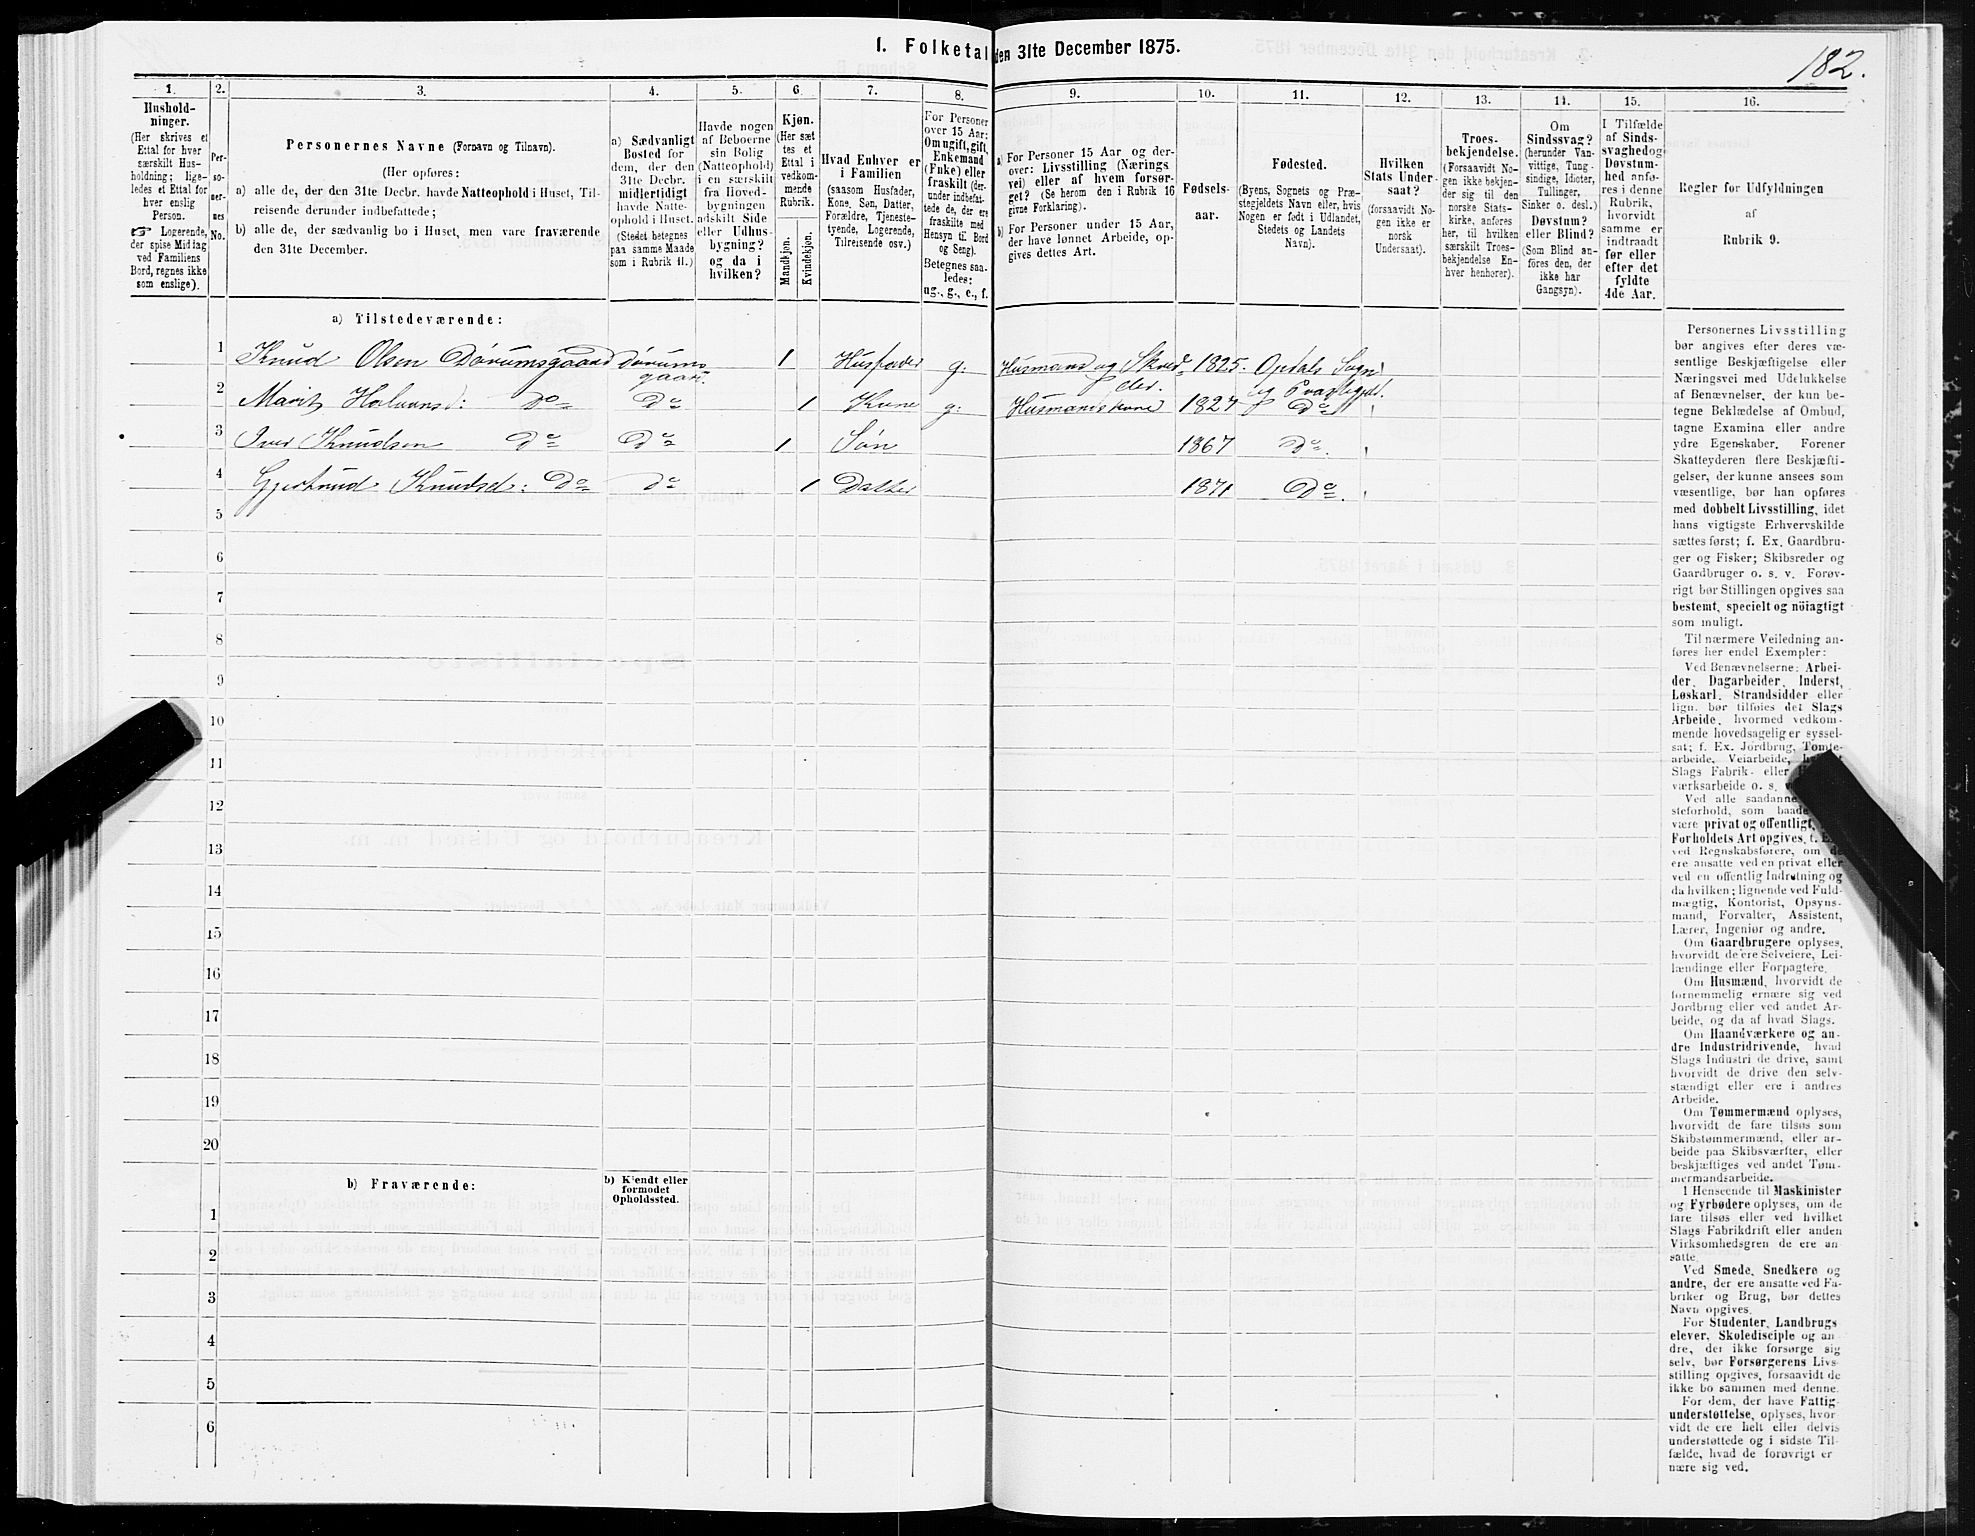 1. Folketal den 31te December 1875.
182.
1.
Hushold-
ninger.
(Her skrives et
Ettal for hver
særskilt Hus-
holdning; lige-
ledes et Ettal for
hver enslig
Person.
☞ Logerende,
der spise Middag
ved Familiens
Bord, regnes ikke
som enslige).
2.
Per-
so-
ner-
nes
No.
3.
Personernes Navne (Fornavn og Tilnavn).
(Her opføres:
a) alle de, der den 31te Decbr. havde Natteophold i Huset, Til-
reisende derunder indbefattede;
b) alle de, der sædvanlig bo i Huset, men vare fraværende
den 31te December.
4.
a) Sædvanligt
Bosted for
dem, der den
31te Decbr.
midlertidigt
havde Natte-
ophold i Huset.
(Stedet betegnes
paa samme Maade
som i Rubrik 11.)
5.
Havde nogen
af Beboerne
sin Bolig
(Natteophold)
i en særskilt
fra Hoved-
bygningen
adskilt Side
eller Udhus-
bygning?
og da i
hvilken?
6.
Kjøn.
(Her sæt
tes et
Ettal i
vedkom-
mende
Rubrik.
Mandkjøn.
Kvindekjøn.
7.
Hvad Enhver er
i Familien
(saasom Husfader,
Kone, Søn, Datter,
Forældre, Tjeneste-
tyende, Logerende,
Tilreisende osv.)
8.
For Personer
over 15 Aar:
Om ugift, gift,
Enkemand
(Enke) eller
fraskilt (der-
under indbefat-
tede de, der ere
fraskilte med
Hensyn til Bord
og Seng).
Betegnes saa-
ledes:
ug., g., e., f.
9.
a) For Personer 15 Aar og der-
over: Livsstilling (Nærings
vei) eller af hvem forsør-
get? (Se herom den i Rubrik 16
givne Forklaring).
b) For Personer under 15 Aar,
der have lønnet Arbeide, op-
gives dettes Art.
10.
Fødsels-
aar.
11.
Fødested.
(Byens, Sognets og Præ-
stegjeldets Navn eller, hvis
Nogen er født i Udlandet,
Stedets og Landets
Navn).
12.
Hvilken
Stats Under-
saat?
(forsaavidt No-
gen ikke er
norsk
Undersaat).
13.
Troes-
bekjendelse.
(Forsaavidt No-
gen ikke bekjen-
der sig til den
norske Stats-
kirke, anføres
her, til hvilken
særskilt Troes-
bekjendelse En-
hver henhører).
14.
Om
Sindssvag?
(herunder Van-
vittige, Tung-
sindige, Idioter,
Tullinger,
Sinker o. desl.)
Døvstum?
eller Blind?
(Som Blind an-
føres den, der
ikke har
Gangsyn).
15.
I Tilfælde
af Sinds-
svaghed og
Døvstum-
hed anfø-
res i denne
Rubrik,
hvorvidt
samme er
indtraadt
før eller
efter det
fyldte
4de Aar.
16.
Regler for Udfyldningen
af
Rubrik 9.
a) Tilstedeværende:
1 Knud Olsen Dørumsgaard Dørums 1 Husfader g: Husmand og Skræd- 1825. Opdals Sogn
gaard. der. og Præstegjel.
2 Marit Halvorsd: Do Do 1 Kone g: Husmandskone 1827 Do
3 Iver Knudsen Do Do 1 Søn 1867 Do.
4 Gjertrud Knudsd: Do Do 1 Datter 1871 Do.
5
6
7
8
9
10
11
12
13
14
15
16
17
18
19
20
b) Fraværende:
b) Kjendt eller
formodet
Opholdssted.
1
2
3
4
5
6
Personernes Livsstilling
bør angives efter deres væ-
sentlige Beskjæftigelse eller
Næringsvei med Udelukkelse
af Benævnelser, der kun be-
tegne Beklædelse af Ombud,
tagne Examina eller andre
ydre Egenskaber. Forener
Skatteyderen flere Beskjæfti-
gelser, der kunne ansees som
væsentlige, bør han opføres
med dobbelt Livsstilling, idet
hans vigtigste Erhvervskilde
sættes først; f. Ex. Gaardbru-
ger og Fisker; Skibsreder og
Gaardbruger o. s. v. Forøv-
rigt bør Stillingen opgives saa
bestemt, specielt og nöiagtigt
som muligt.
Til nærmere Veiledning an-
føres her endel Exempler:
Ved Benævnelserne: Arbei-
der, Dagarbeider, Inderst,
Løskarl, Strandsidder eller
lign. bør tilføies det Slags
Arbeide, hvormed vedkom-
mende hovedsagelig er syssel-
sat; f. Ex. Jordbrug, Tomte-
arbeide, Veiarbeide,
Slags Fabrik- eller
værksarbeide o. s.
Ved alle saadanne
steforhold, som baade
være privat og offentligt,
Forholdets Art opgives, f. Ex.
ved Regnskabsførere, om de
ere ansatte ved en privat eller
ved en offentlig Indretning og
da hvilken; lignende ved Fuld-
mægtig, Kontorist, Opsyns-
mand, Forvalter, Assistent,
Lærer, Ingeniør og andre.
Om Gaardbrugere oplyses,
hvorvidt de ere Selveiere, Lei-
lændinge eller Forpagtere.
Om Husmænd, hvorvidt de
fornemmelig ernære sig ved
Jordbrug eller ved andet Ar-
beide, og da af hvad Slags.
Om Haandværkere og an-
dre Industridrivende, hvad
Slags Industri de drive, samt
hvorvidt de drive den selv-
stændigt eller ere i andres
Arbeide.
Om Tømmermænd oplyses,
hvorvidt de fare tilsøs som
Skibstømmermænd, eller ar-
beide paa Skibsværfter, eller
beskjæftiges ved andet Tøm-
mermandsarbeide.
I Henseende til Maskinister
og Fyrbødere oplyses, om de
fare tilsøs eller ved hvilket
Slags Fabrikdrift eller anden
Virksomhedsgren de ere an-
satte.
Ved Smede, Snedkere og
andre, der ere ansatte ved Fa-
briker og Brug, bør dettes
Navn opgives.
For Studenter, Landbrugs
elever, Skoledisciple og an
dre, der ikke forsørge sig
selv, bør Forsørgerens Livs-
stilling opgives, forsaavidt de
ikke bo sammen med denne.
For dem, der have Fattig-
understøttelse, oplyses, hvor-
vidt de ere helt eller delvis
understøttede og i sidste Til-
fælde, hvad de forøvrigt er
nære sig ved.